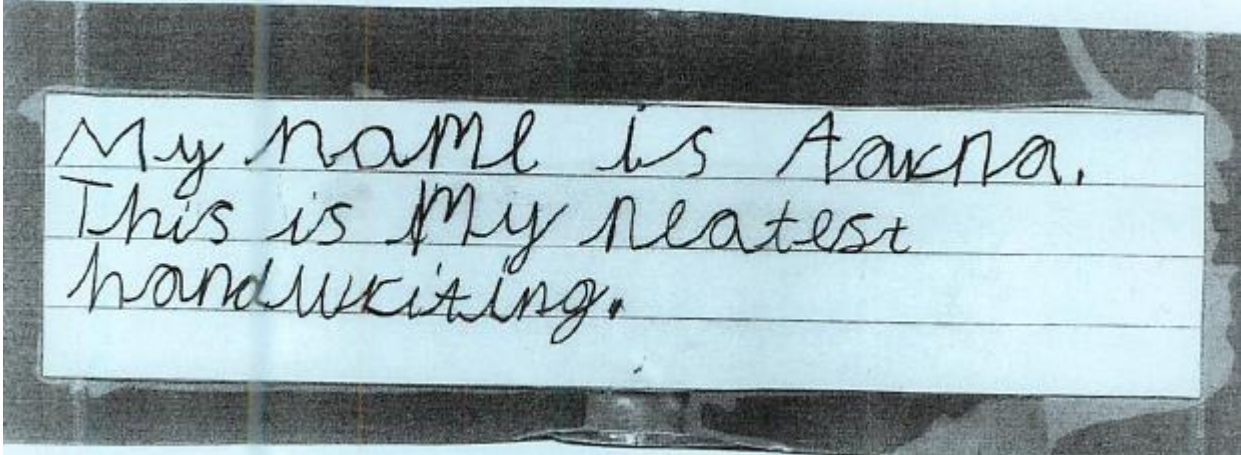 My name is Aarna.
This is My neatest
handwriting.